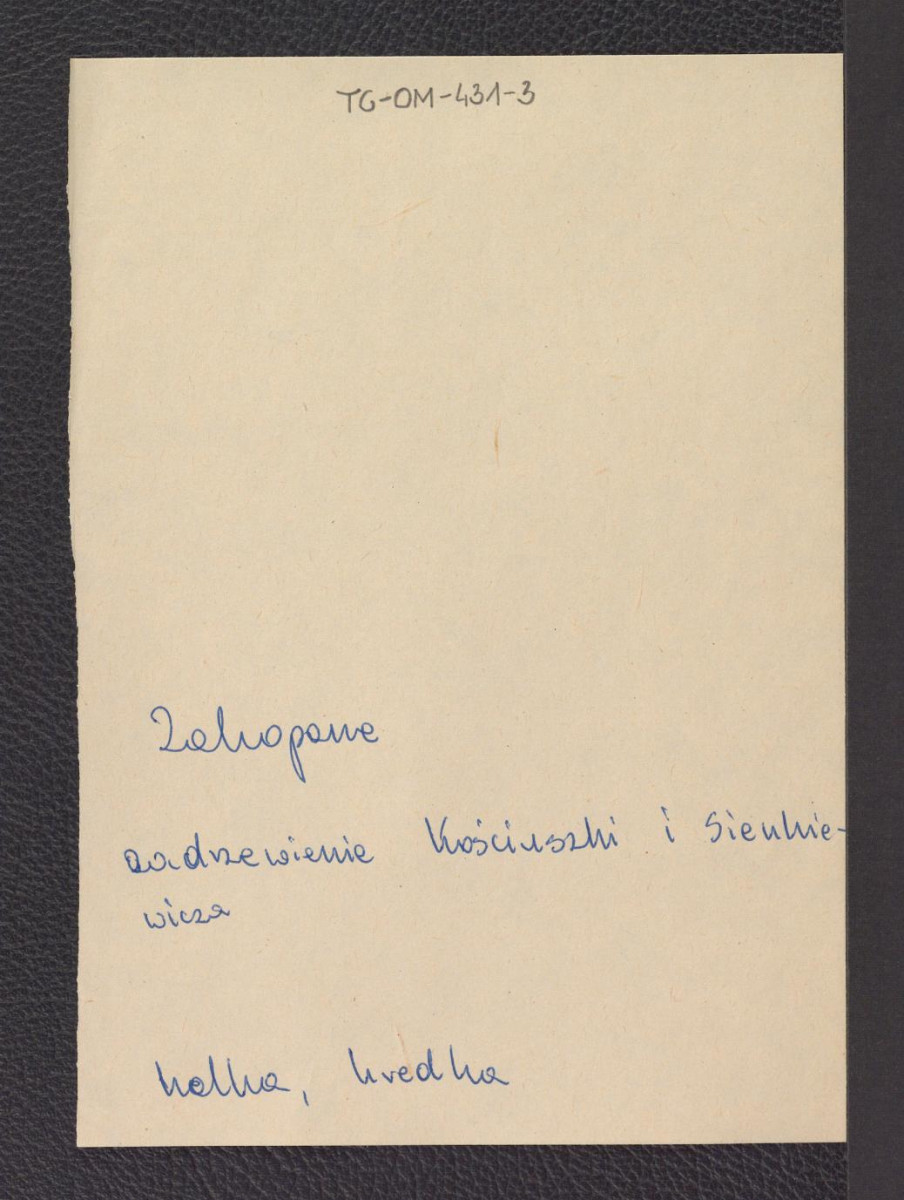 TG-OM-431-3
Zakopane
zadrzewienie Kościuszki i Sienkie-
wicza
kalka, kredka